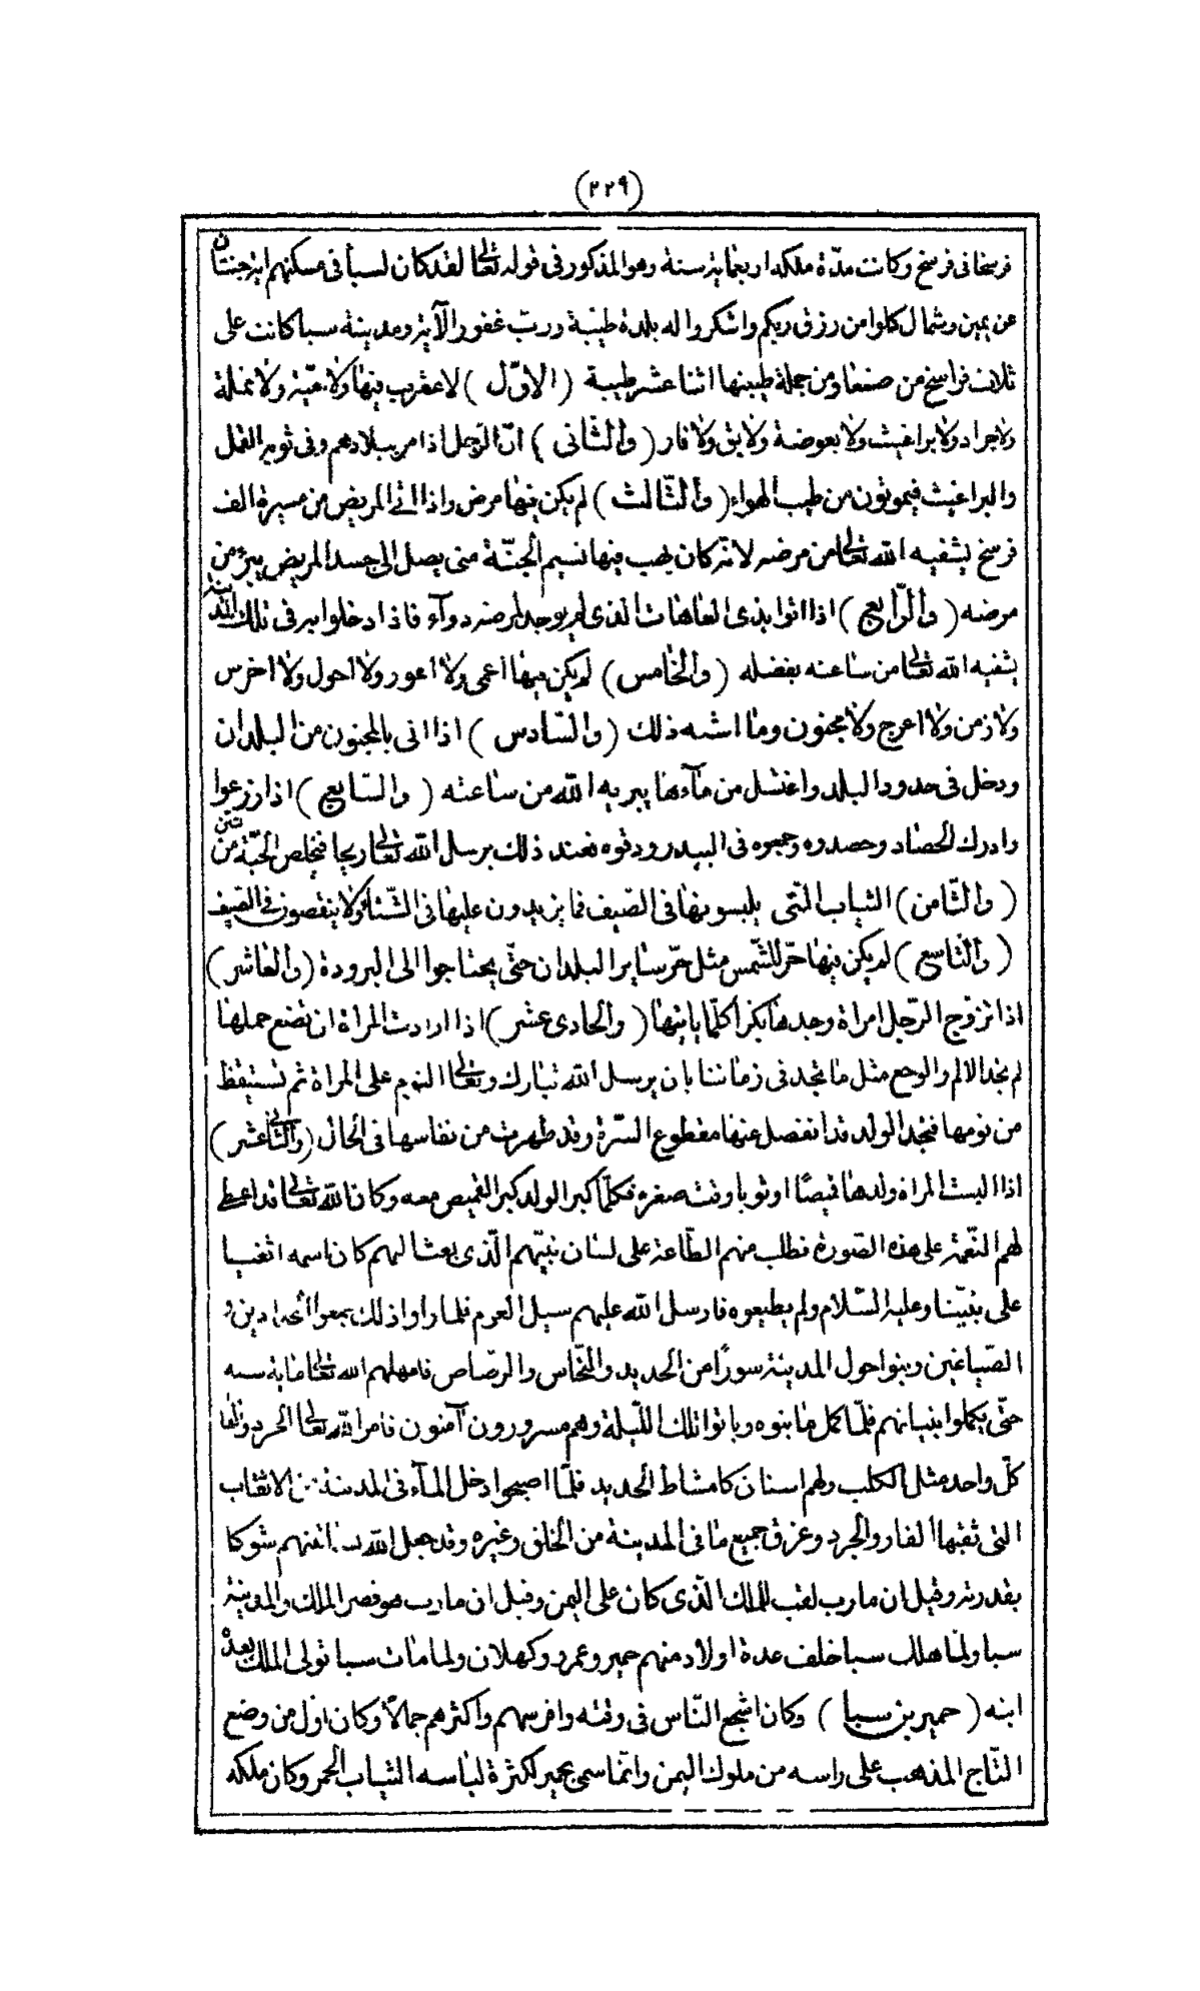 (٢٢٩)
فرسخا فى فرسخ وكانت مدّة ملكه اربعماية سنة وهو المذكور فى قوله تعالى لقد كان لسبأ فى مسكنهم اية جنتان
عن يمين وشمال كلوا من رزق ربكم واشكروا له بلدة طيّبة وربّ غفور الآية ومدينة سبا كانت على
ثلاث فراسخ من صنعا ومن جملة طيبتها اثنا عشر طيبة (الاوّل) لا عقرب فيها ولا حيّة ولا نملة
ولا جراد ولا براغيث ولا بعوضة ولا بق ولا فار (والثّانى) انّ الرّجل اذا مر ببلادهم وفى ثوبه القمل
والبراغيث فيموتون من طيب الهواء (والثّالث) لم يكن فيها مرض واذا اتى المريض من مسيرة الف
فرسخ يشفيه الله تعالى من مرضه لانّه كان يهب فيها نسيم الجنّة متى يصل الى جسد المريض يبرؤ من
مرضه (والرّابع) اذا اتوا بذى العاهات الذى لم يوجد لمرضه دوآء فاذا دخلوا به فى تلك المدينة
يشفيه الله تعالى من ساعته بفضله (والخامس) لم يكن فيها اعمى ولا اعور ولا احول ولا اخرس
ولا زمن ولا اعرج ولا مجنون وما اشبه ذلك (والسّادس) اذا اتى بالمجنون من البلدان
ودخل فى حدود البلد واغتسل من مآءها يبريه الله من ساعته (والسّابع) اذا زرعوا
وادرك الحصاد وحصدوه وجمعوه فى البيدر ودقوه فعند ذلك يرسل الله تعالى ريحا فيخلص الحبّة من تبن
(والثّامن) الثياب التّى يلبسونها فى الصّيف فما يزيدون عليها فى الشّتاء ولا ينقصون فى الصّيف
(والتّاسع) لم يكن فيها حرّ للشّمس مثل حرّ ساير البلدان حتّى يحتاجوا الى البرودة (والعاشر)
اذا تزوج الرّجل امراة وجدها بكرا كلّما ياتيها (والحادى عشر) اذا ارادت المراة ان تضع حملها
لم تجد الالم والوجع مثل ما تجد فى زماننا بان يرسل الله تبارك وتعالى النوم على المراة ثم تستيقظ
من نومها فتجد الولد قد انفصل عنها مقطوع السّرة وقد طهرت من نفاسها فى الحال (والثّانى عشر)
اذا البست المراة ولدها قميصًا او ثوبا وقت صغره فكلّما كبر الولد كبر القميص معه وكان الله تعالى قد اعطى
لهم النّعمة على هذه الصّورة فطلب منهم الطّاعة على لسان نبيّهم الّذى بعث اليهم كان اسمه اشعيا
على نبيّنا وعليه السّلام ولم يطيعوه فارسل الله عليهم سيل العرم فلما راوا ذلك جمعوا الحدادين و
الصّباغين وبنوا حول المدينة سورًا من الحديد والنّحاس والرصاص فامهلهم الله تعالى ماية سنه
حتّى يكملوا بنيانهم فلمّا كمل ما بنوه وباتوا تلك اللّيلة وهم مسرورون آمنون فامر الله تعالى الجرد والفا
كلّ واحد مثل الكلب ولهم اسنان كامشاط الحديد فلمّا اصبحوا دخل المآء فى المدينة من الاثقاب
التى ثقبها الفار والجرد وغرق جميع ما فى المدينة من الخلق وغيره وقد جعل الله شوكا
بقدرته وقيل ان مارب لقب للملك الّذى كان على اليمن وقيل ان مارب هو قصر الملك والمدينة
سبا ولمّا هلك سبا خلف عدة اولاد منهم حمير وعمرو وكهلان ولما مات سبا تولى الملك بعده
ابنه (حمير بن سبا) وكان اشجع النّاس فى وقته وافرسهم واكثرهم جمالاً وكان اوّل من وضع
التّاج المذهب على راسه من ملوك اليمن وانّما سمى بحمير لكثرة لباسه الثياب الحمر وكان ملكه